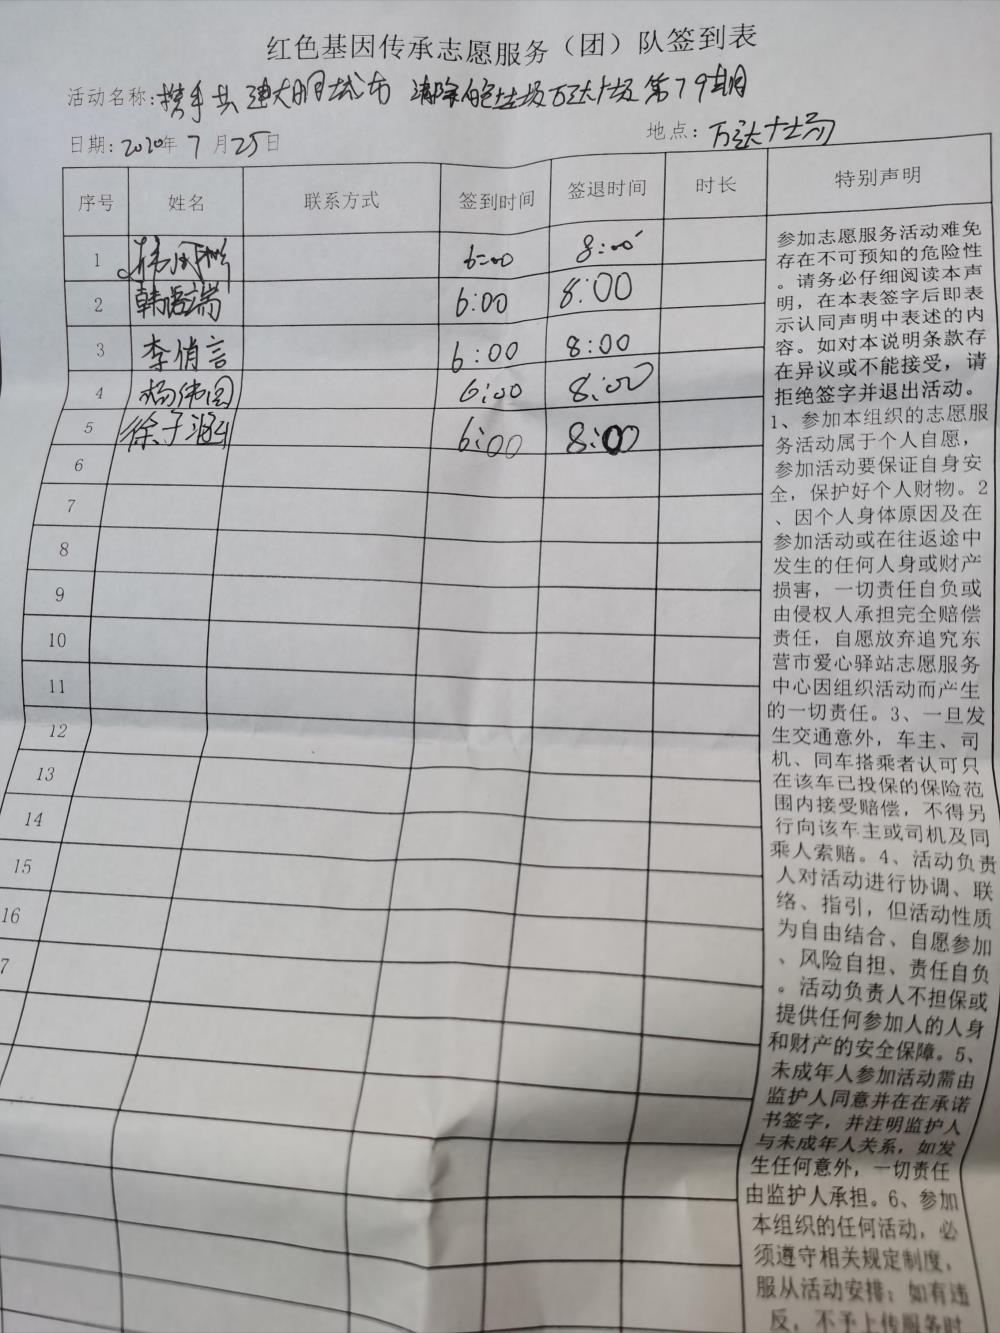 红色基因传承志愿服务（团）队签到表
活动名称：携手共建文明城市 清除白色垃圾万达广场第79期
日期：2020年7月25日
地点：万达广场
序号 姓名 联系方式 签到时间 签退时间 时长 特别声明
1 6:00 8:00
2 韩 端 6:00 8:00
3 李俏言 6:00 8:00
4 杨伟国 6:00 8:00
5 徐子涵 6:00 8:00
6
7
8
9
10
11
12
13
14
15
16
7
参加志愿服务活动难免
存在不可预知的危险性
。请务必仔细阅读本声
明，在本表签字后即表
示认同声明中表述的内
容。如对本说明条款存
在异议或不能接受，请
拒绝签字并退出活动。
1、参加本组织的志愿服
务活动属于个人自愿，
参加活动要保证自身安
全，保护好个人财物。2
、因个人身体原因及在
参加活动或在往返途中
发生的任何人身或财产
损害，一切责任自负或
由侵权人承担完全赔偿
责任，自愿放弃追究东
营市爱心驿站志愿服务
中心因组织活动而产生
的一切责任。3、一旦发
生交通意外，车主、司
机、同车搭乘者认可只
在该车已投保的保险范
围内接受赔偿，不得另
行向该车主或司机及同
乘人索赔。4、活动负责
人对活动进行协调、联
络、指引，但活动性质
为自由结合、自愿参加
、风险自担、责任自负
。活动负责人不担保或
提供任何参加人的人身
和财产的安全保障。5、
未成年人参加活动需由
监护人同意并在在承诺
书签字，并注明监护人
与未成年人关系，如发
生任何意外，一切责任
由监护人承担。6、参加
本组织的任何活动，必
须遵守相关规定制度，
服从活动安排；如有违
反，不予上传服务时